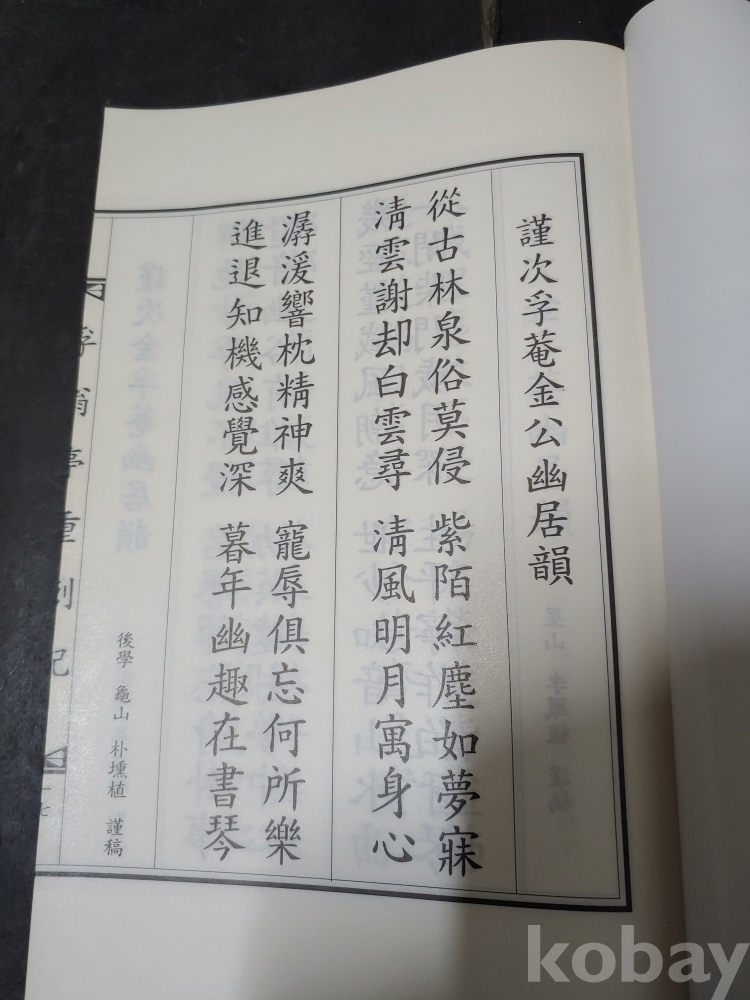 謹次孚菴金公幽居韻
從古林泉俗莫侵 紫陌紅塵如夢寐
淸雲謝却白雲尋 淸風明月寓身心
潺湲響枕精神爽 寵辱俱忘何所樂
進退知機感覺深 暮年幽趣在書琴
後學 龜山 朴壎植 謹稿
亭重刱記
kobay